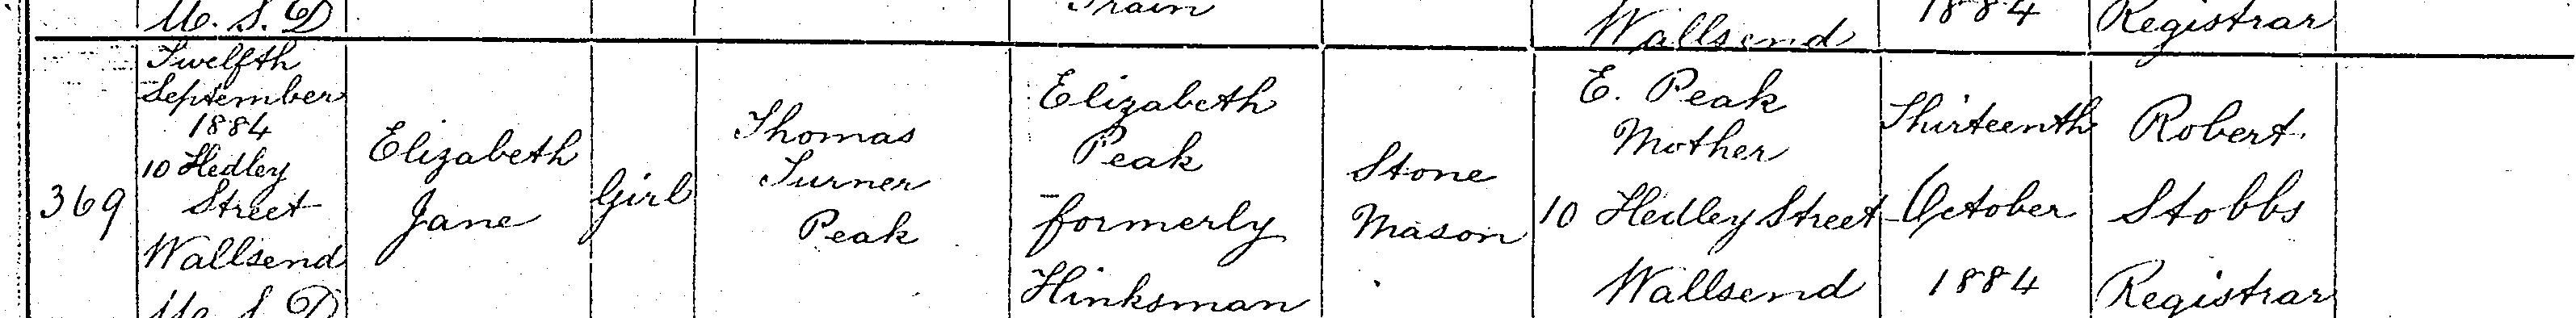 U. S. D
Train
Wallsend
1884
Registrar
369
Twelfth
September
1884
10 Hedley
Street
Wallsend
U. S. D
Elizabeth
Jane
Girl
Thomas
Turner
Peak
Elizabeth
Peak
formerly
Hinksman
Stone
Mason
E. Peak
Mother
10 Hedley Street
Wallsend
Thirteenth
October
1884
Robert
Stobbs
Registrar